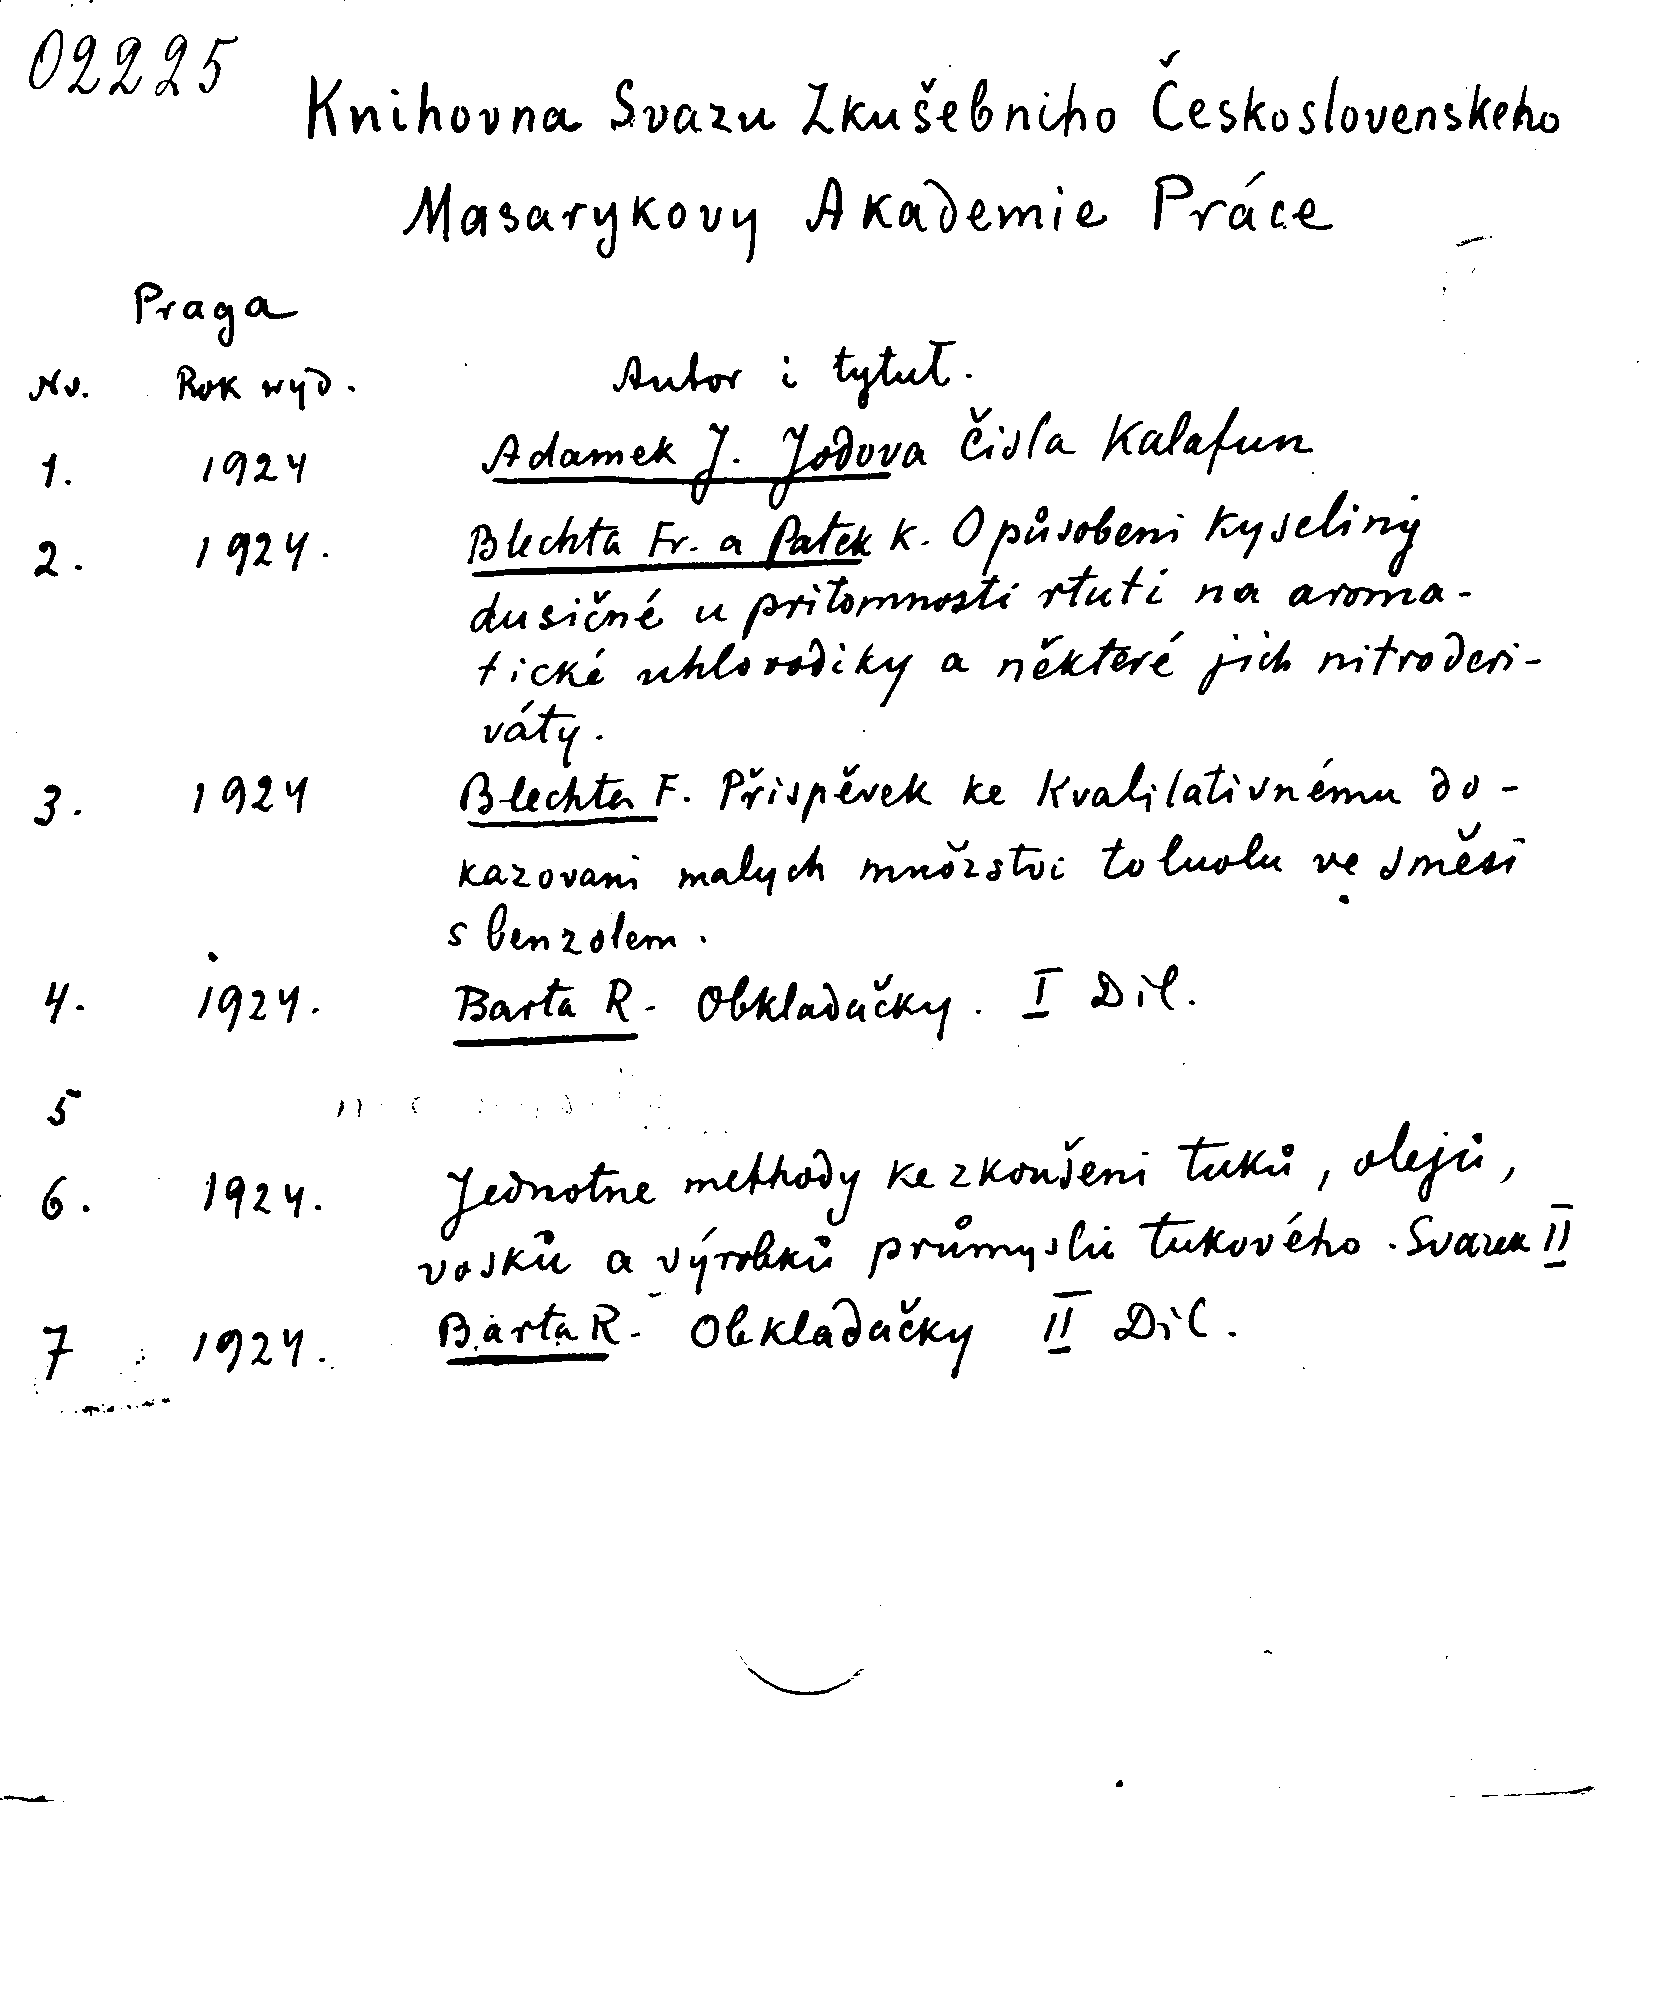 02225
Knihovna Svazu Zkušebniho Československeho
Masarykovy Akademie Práce
Praga
No. Rok wyd. Autor i tytuł.
1. 1924 Adamek J. Jodova čisla Kalafun
2. 1924. Blechta Fr. a Patek K. O působeni kyseliny
dusičné u pritomnosti rtuti na aroma-
tické uhlovodiky a některé jich nitroderi-
váty.
3. 1924 Blechta F. Přispěvek ke kvalilativnému do-
kazovani malych mnǒzstvi toluolu ve směsi
s benzolem.
4. 1924. Barta R. Obkladačky. I Dil.
5
6. 1924. Jednotne methody ke zkoušeni tuků, olejů,
vosků a výrobků průmyslu tukového. Svazek II
7 1924. Barta R. Obkladačky II Dil.